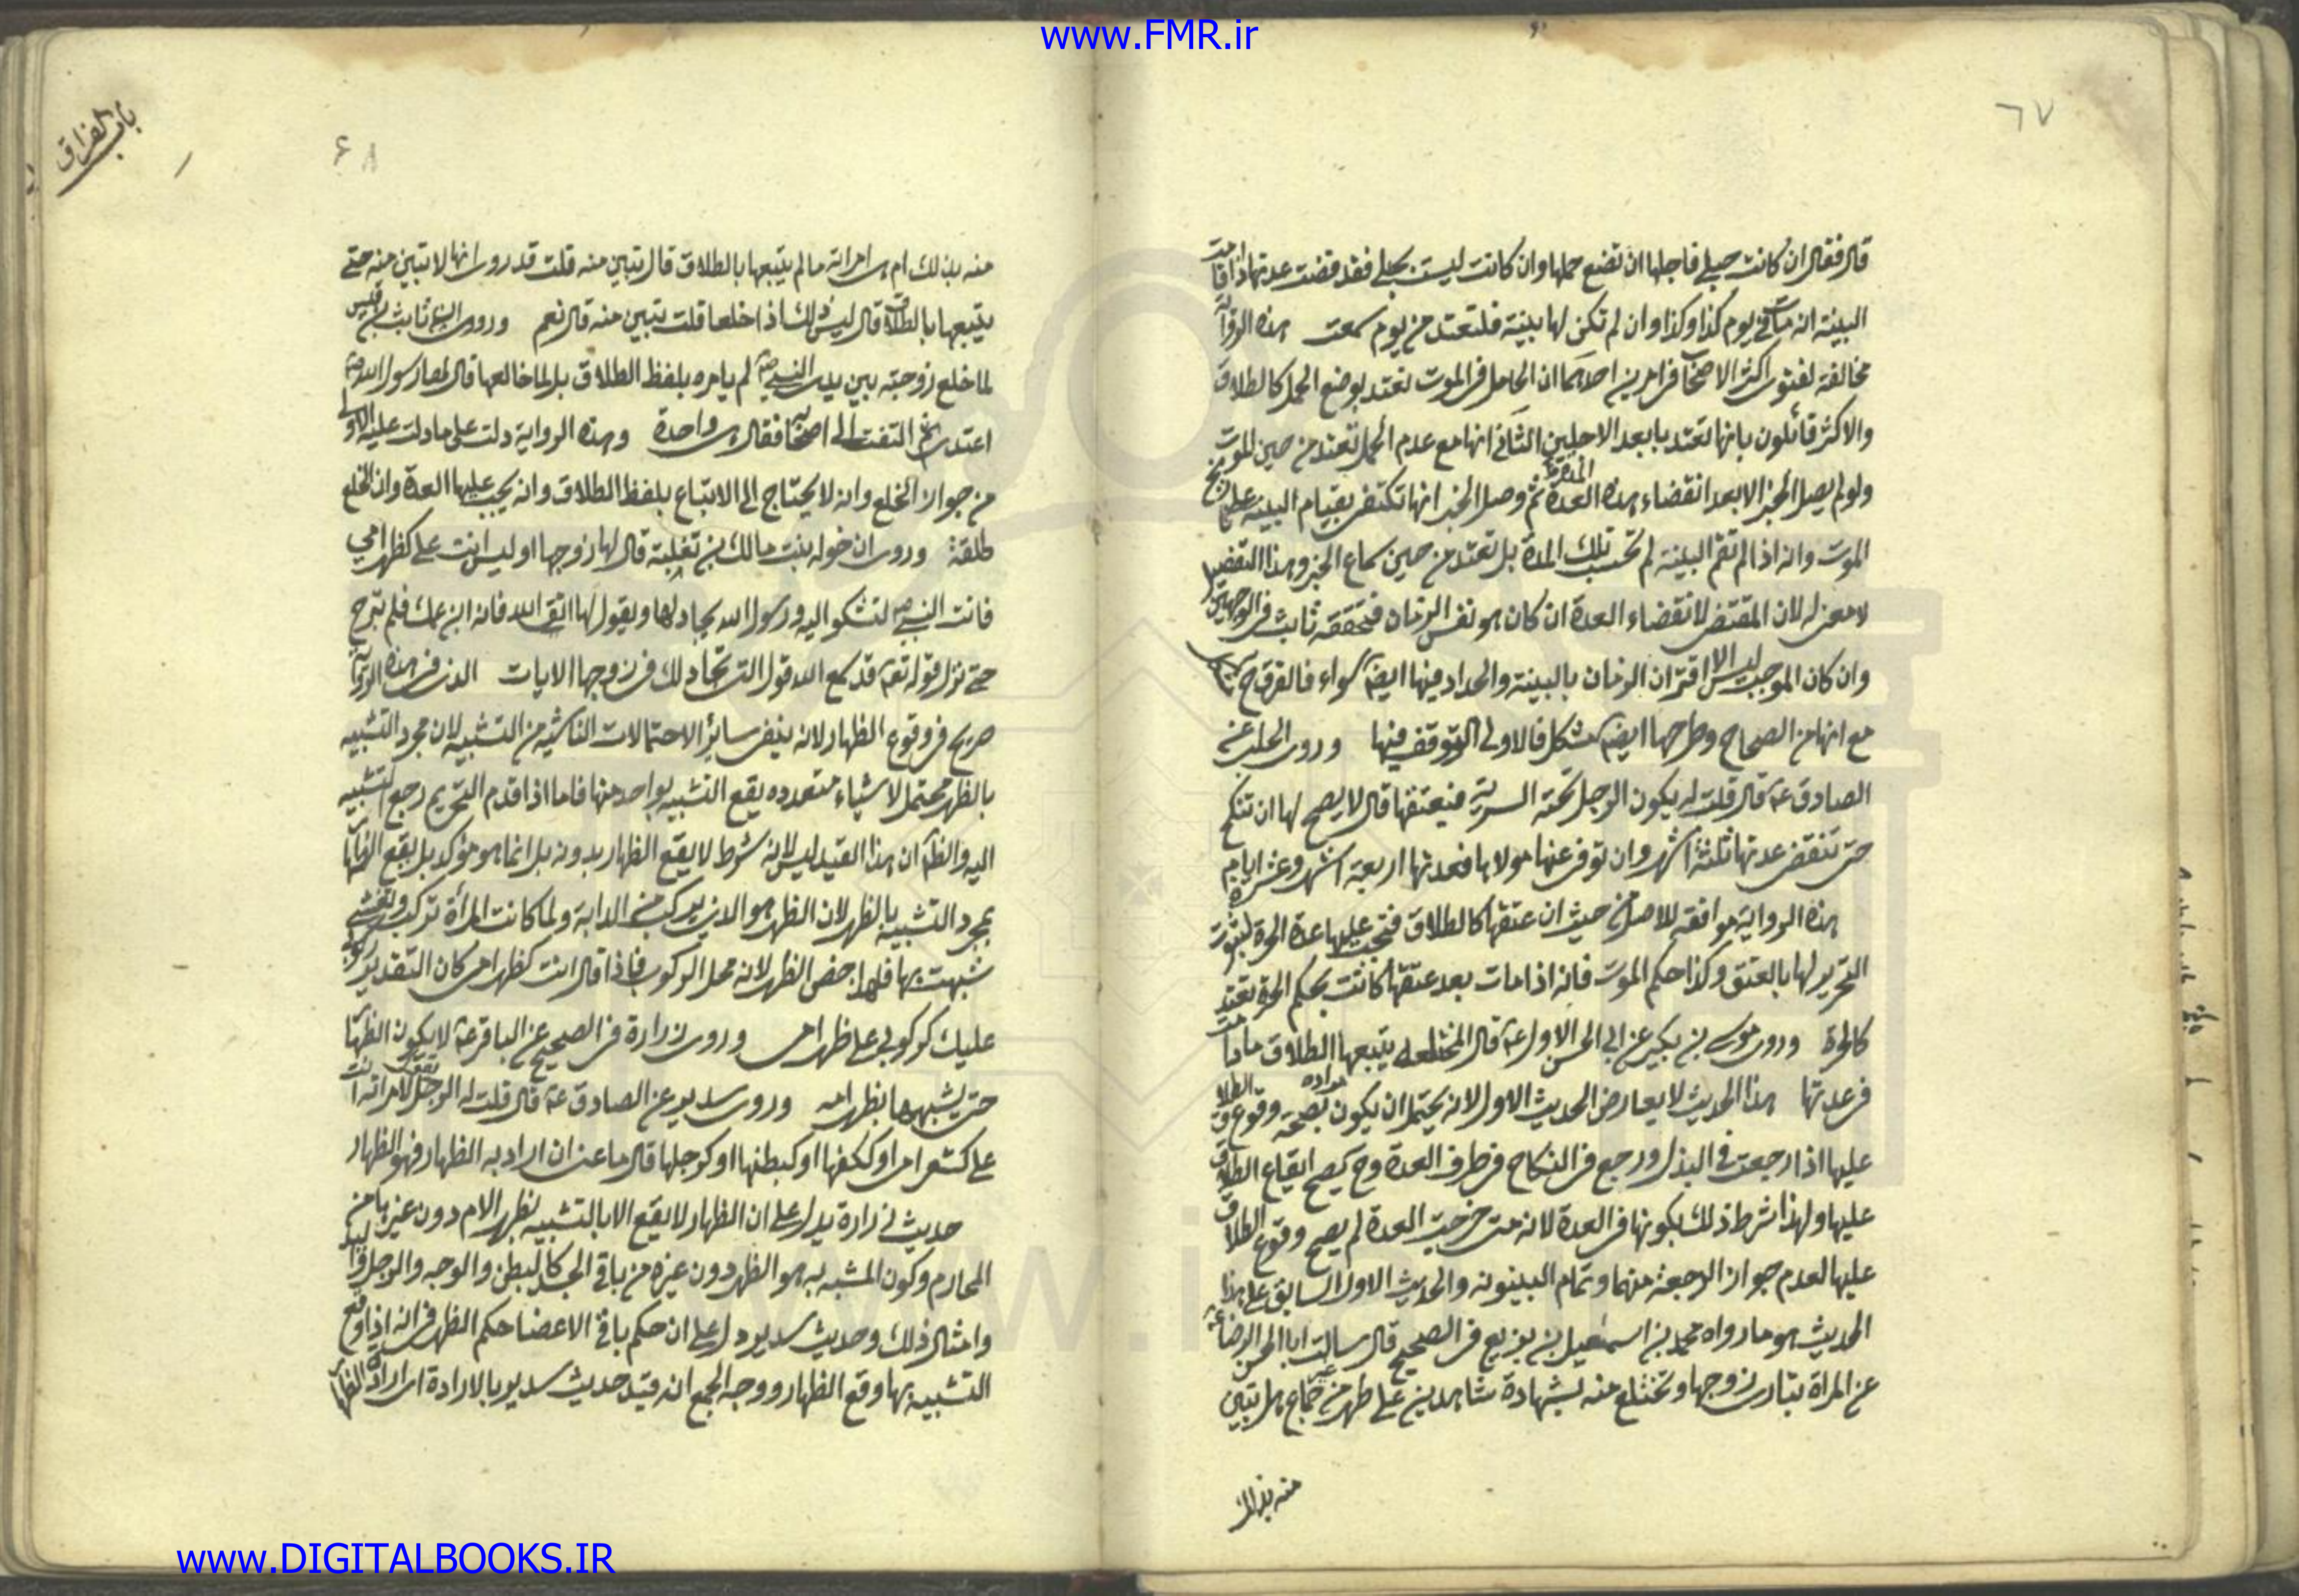 www.FMR.ir
٦٧
قال فقال ان كانت حبلى فاجلها ان تضع حملها وان كانت ليست بحبلى فقد مضت عدتها اذا قامت
البينة انه مات فى يوم كذا وكذا وان لم تكن لها بينة فلتعتد من يوم سمعت هذه الرواية
مخالفة لفتوى اكثر الاصحاب فى امرين احدهما ان الحامل فى الموت تعتد بوضع الحمل كالطلاق
والاكثر قائلون بانها تعتد بابعد الاجلين الثانى انها مع عدم الحمل تعتد من حين الموت
ولو لم يصل الخبر الا بعد انقضاء هذه العدة ثم وصل الخبر انها تكتفى بقيام البينة على
الموت وانه اذا لم تقم البينة لم تحسب تلك المدة بل تعتد من حين سماع الخبر وهذا التفصيل
لا معنى له لان المقتضى لانقضاء العدة ان كان هو نفس الزمان فتحققه ثابت فى الوجهين
وان كان الموجب ليس الا اقتران الزمان بالبينة والحداد فيها ايضا سواء فالفرق ح
مع انها من الصحاح وطرحها ايضا مشكل فالاولى التوقف فيها وروى الحلبى عن
الصادق ع قال قلت له يكون الرجل تحته السرية فيعتقها قال لا يصلح لها ان تنكح
حتى تنقضى عدتها ثلثة اشهر وان توفى عنها مولاها فعدتها اربعة اشهر وعشرة ايام
هذه الرواية موافقة للاصل من حيث ان عتقها كالطلاق فتجب عليها عدة الحرة لثبوت
التحرير لها بالعتق وكذا حكم الموت فانه اذا مات بعد عتقها كانت بحكم الحرة تعتد
كالحرة وروى موسى بن بكير عن ابى الحسن الاول ع قال المختلعة يتبعها الطلاق ما دامت
فى عدتها هذا الحديث لا يعارض الحديث الاول لانه يحتمل ان يكون مراده بصحة وقوع الطلاق
عليها اذا رجعت فى البذل ورجع فى النكاح فى طرف العدة وح يصح ايقاع الطلاق
عليها ولهذا شرط ذلك بكونها فى العدة لانه متى خرجت العدة لم يصح وقوع الطلاق
عليها لعدم جواز الرجعة منهما وتمام البينونة والحديث الاول السابق على هذا
الحديث هو ما رواه محمد بن اسمعيل بن بزيع فى الصحيح قال سالت ابا الحسن الرضا ع
عن المراة تبارى زوجها وتختلع منه بشهادة شاهدين على طهر من غير جماع هل تبين
منه بذلك
باب الفراق
۶۸
منه بذلك ام هى امراته ما لم يتبعها بالطلاق قال تبين منه قلت قد روى انها لا تبين منه حتى
يتبعها بالطلاق قال ليس ذلك اذا خلعا قلت تبين منه قال نعم وروى ان ثابت بن قيس
لما خلع زوجته بين يدى النبى ص لم يامره بلفظ الطلاق بل لما خالعها قال لها رسول الله ص
اعتدى ثم التفت الى اصحابه فقال هى واحدة وهذه الرواية دلت على ما دلت عليه الاولى
من جواز الخلع وانه لا يحتاج الى الاتباع بلفظ الطلاق وانه يجب عليها العدة وان الخلع
طلقة وروى ان خولة بنت مالك بن ثعلبة قال لها زوجها اوليس انت على كظهر امى
فاتت النبى ص لتشكو اليه ورسول الله يجادلها ويقول لها اتقى الله فانه ابن عمك فلم تبرح
حتى نزل قوله تعم قد سمع الله قول التى تجادلك فى زوجها الايات الذى فى هذه الرواية
صريح فى وقوع الظهار لانه ينفى سائر الاحتمالات الناشية من التشبيه لان مجرد التشبيه
بالظهر محتمل لاشياء متعدده يقع التشبيه بواحد منها فاما اذا قدم التحريم رجع التشبيه
اليه والظ ان هذا القيد ليس لانه شرط لا يقع الظهار بدونه بل انما هو مؤكد بل يقع الظهار
بمجرد التشبيه بالظهر لان الظهر هو الذى يركب من الدابة ولما كانت المرأة تركب وتغشى
شبهت بها فلهذا خص الظهر لانه محل الركوب فاذا قال انت كظهر امى كان التقدير ركوبى
عليك كركوبى على ظهر امى وروى زرارة فى الصحيح عن الباقر ع لا يكون الظهار
حتى يشبهها بظهر امه وروى سدير عن الصادق ع قال قلت له الرجل يقول لامراته انت
على كشعر امى او ككفها او كبطنها او كرجلها قال ما عنى ان اراد به الظهار فهو الظهار
حديث زرارة يدل على ان الظهار لا يقع الا بالتشبيه بظهر الام دون غيرها من
المحارم وكون المشبه به هو الظهر دون غيره من باقى الجسد كالبطن والوجه والرجل واليد
وامثال ذلك وحديث سدير دل على ان حكم باقى الاعضا حكم الظهر فى انه اذا وقع
التشبيه بها وقع الظهار ووجه الجمع انه قيد حديث سدير بالارادة اى ارادة الظهار
www.DIGITALBOOKS.IR